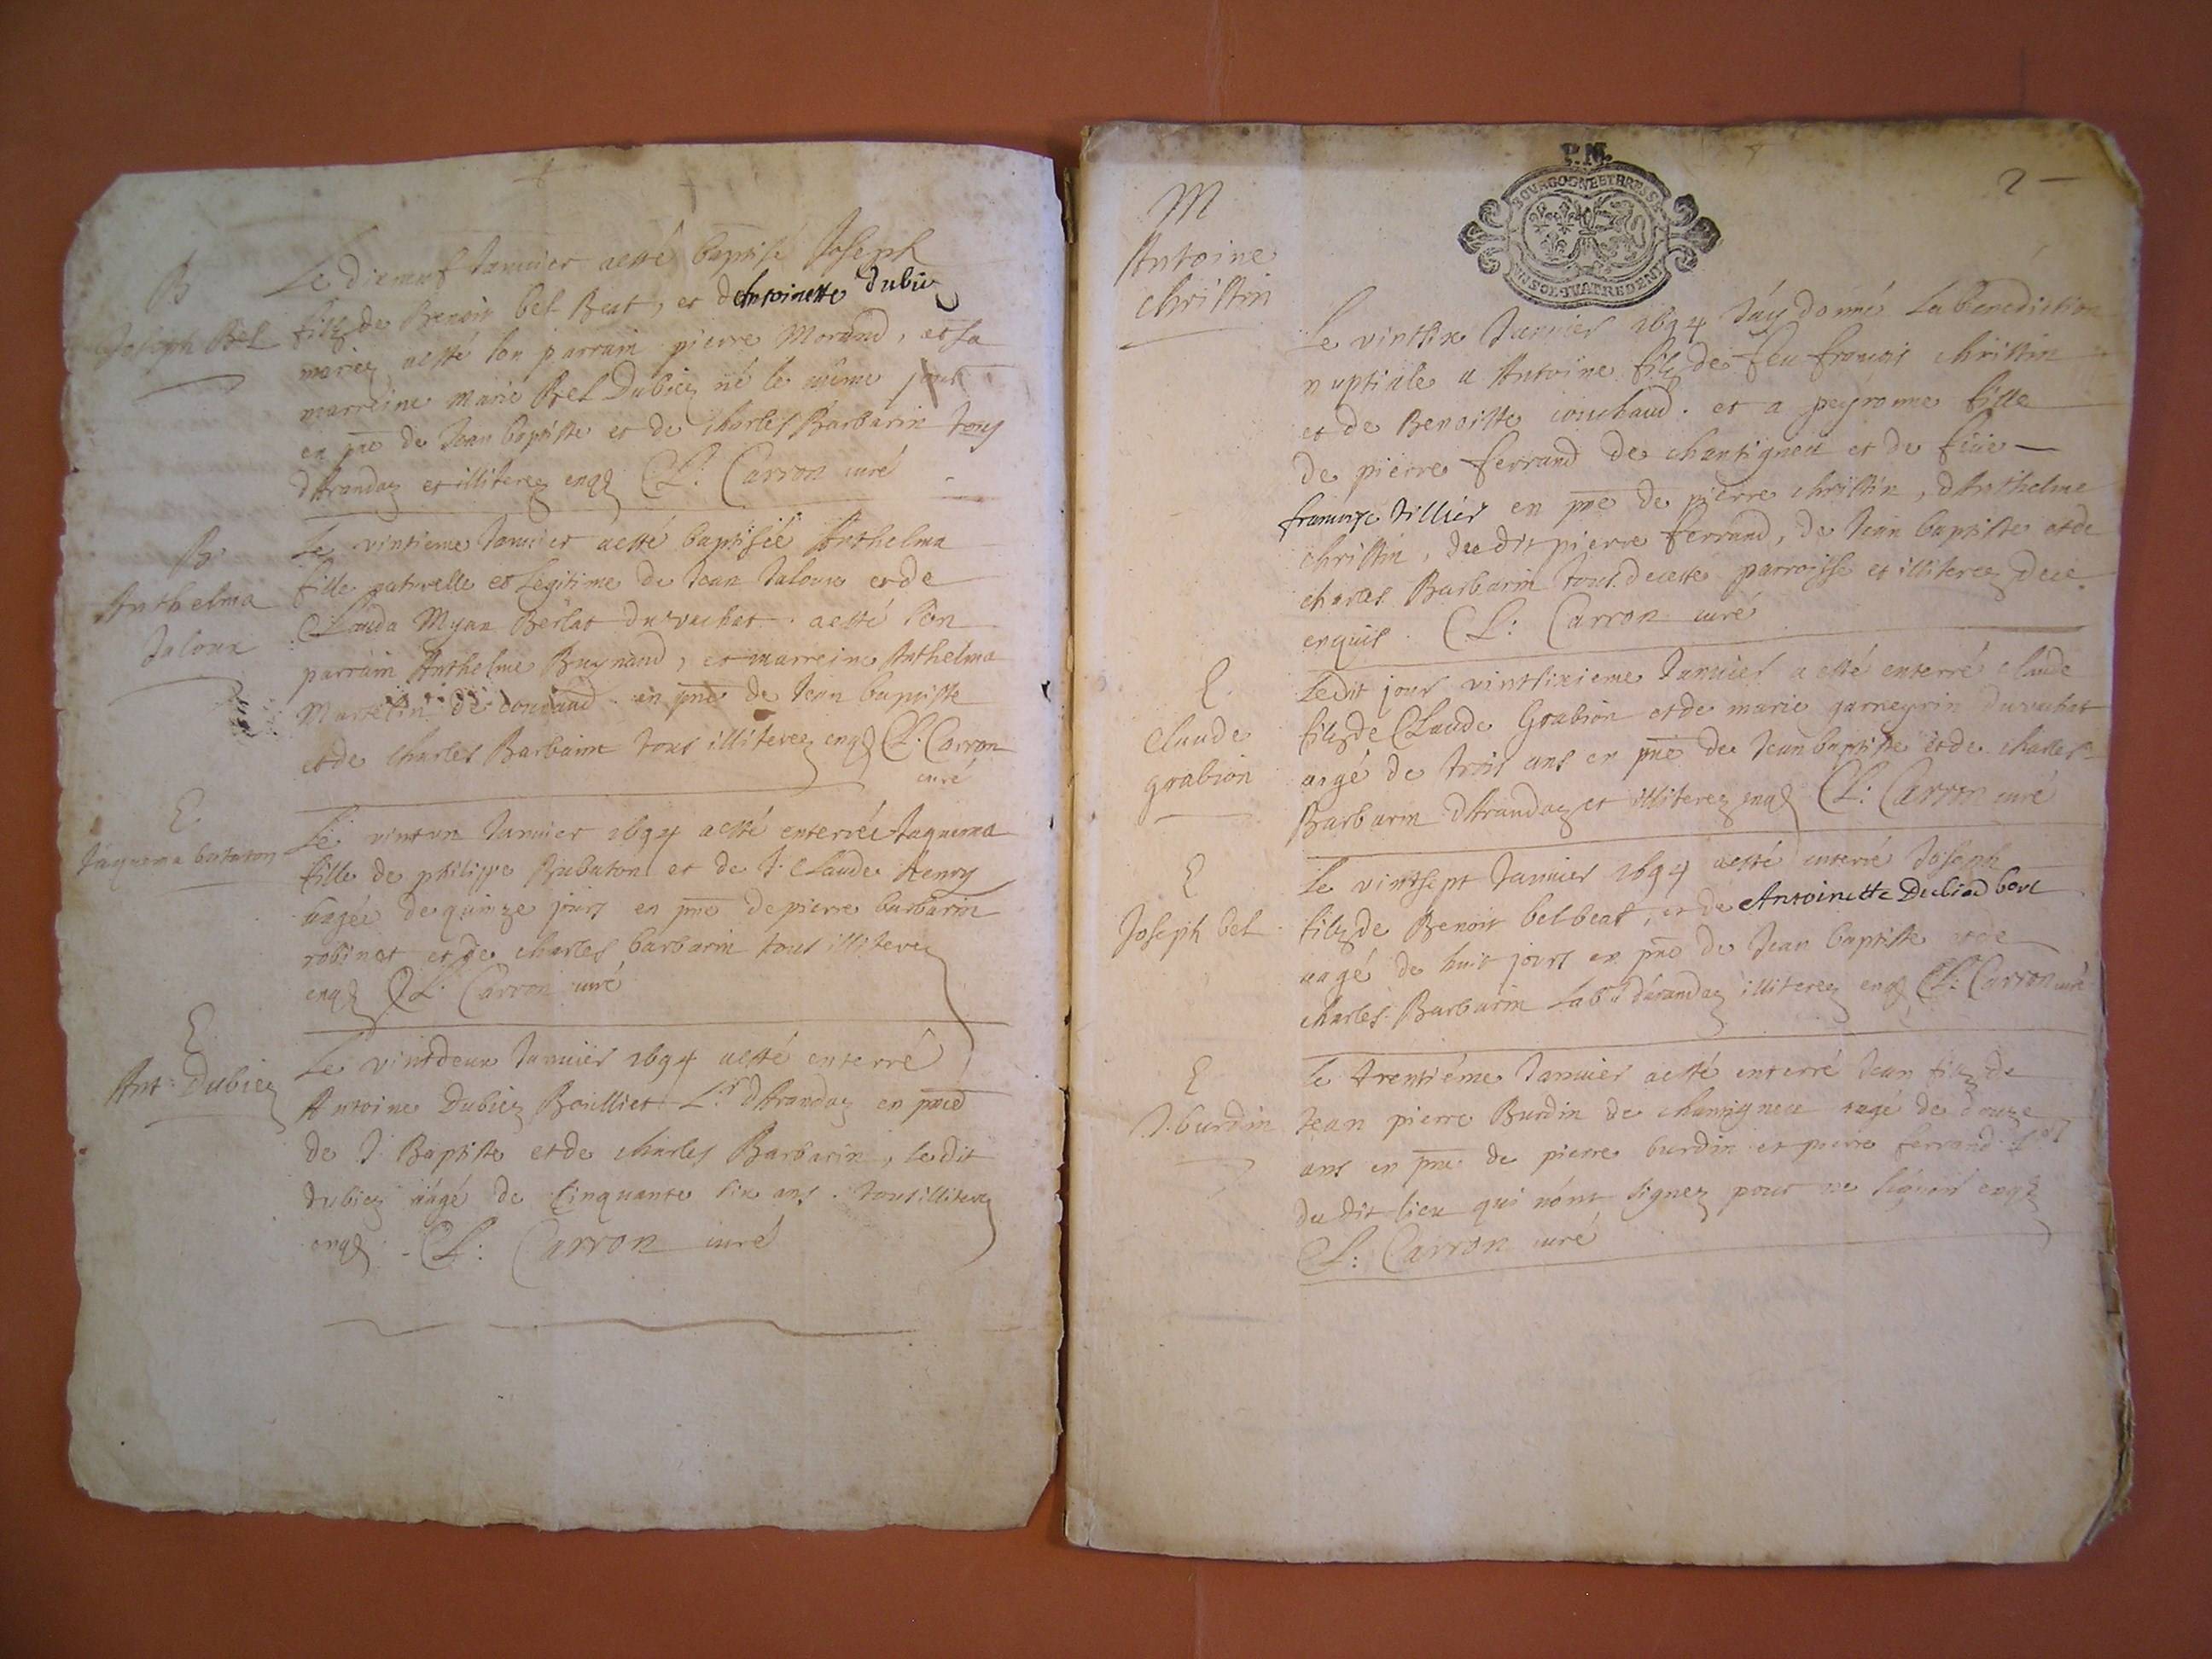 B
Joseph Bel
Le dixneuf Januier aesté baptisé Joseph
filz de Benoit bel Beat, et dAntoinette dubiez
mariez aesté son parrain pierre Morand, et sa
marreine Marie Bel Dubiez né le même jour
en pnce de Jean baptiste et de Charles Barbarin tous
dArandaz et illiterez enqs CL: Carron curé
B
Anthelma
Jaloux
Le vintieme Januier aesté baptisée Anthelma
fille naturelle et Legitime de Jean Jaloux et de
Clauda Myan Berlat du vachat. aesté son
parrain Anthelme Buynand, et marreine Anthelma
Martelin de en pnce de Jean baptiste
et de Charles Barbarin tous illiterez enqs CL: Carron
curé
E
Jaquema bubaton
Le vintun Januier 1694 aesté enterrée Jaquema
fille de philippe Bubaton et de J: Claude Henry
aagée de quinze jours en pnce de pierre barbarin
robinet et de charles barbarin tous illiterez
enqs CL: Carron curé
E
Ant: Dubiez
Le vintdeux Januier 1694 aesté enterré
Antoine Dubiez Boulliet L.r dArandaz en pnce
de J: Baptiste et de Charles Barbarin, ledit
dubiez aagé de Cinquante six ans. tous illiterez
enqs. CL: Carron curé
P.M.
BOURGOGNE ET BRESSE
UN SOL QUATRE DEN
2
M
Antoine
christin
Le vintsix Januier 1694 J'ay donné La benediction
nuptiale a Antoine filz de feu françois christin
et de Benoiste couchaud. et a peyronne fille
de pierre ferrand de chantigneu et de feüe
françoise tillier en pnce de pierre christin, dAnthelme
christin, du dit pierre ferrand, de Jean baptiste et de
charles Barbarin tous de ceste parroisse et illiterez de ce
enquis. CL: Carron curé
E
Claude
grabion
Ledit jour vintsixieme Januier a esté enterré Claude
filz de Claude Grabion et de marie garneyrin du vachat
aagé de trois ans en pnce de Jean baptiste et de charles
Barbarin dArandaz et illiterez enqs CL: Carron curé
E
Joseph bel
Le vintsept Januier 1694 aesté enterré Joseph
filz de Benoit bel beat, et de Antoinette
aagé de huit jours en pnce de Jean baptiste et de
charles Barbarin Lab.rs d'arandaz illiterez enqs CL: Carron curé
E
J. burdin
Le trentiéme Januier aesté enterré Jean filz de
Jean pierre Burdin de chantigneu aagé de douze
ans en pnce de pierre burdin et pierre ferrand L.rs
du dit lieu qui n'ont signez pour ne sçavoir enqs
CL: Carron curé